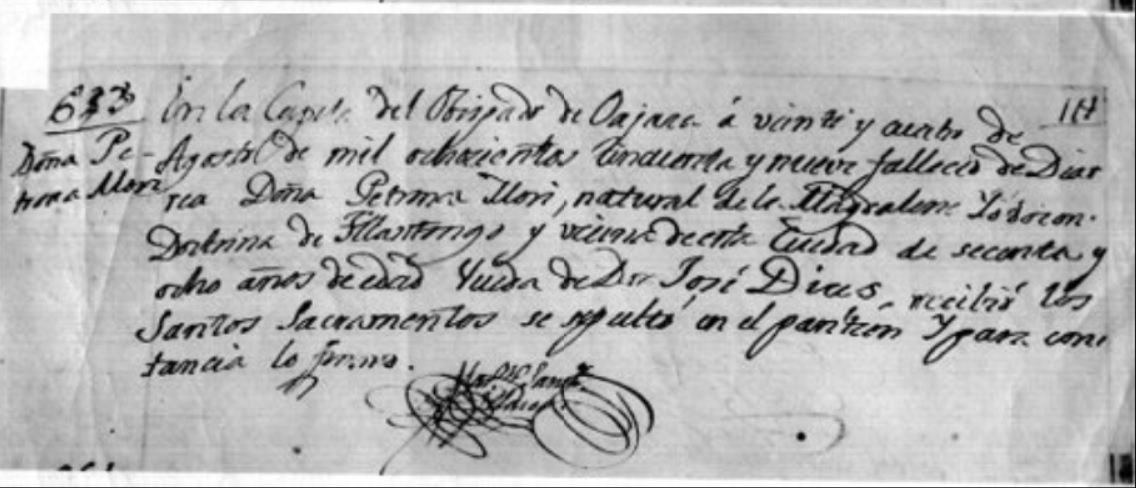 633
Doña Pe-
trona Mori
En la Capita del Obispado de Oajaca á veinti y cuatro de
Agosto de mil ochocientos cincuenta y nueve fallecio de Diar
rea Doña Petrona Mori, natural de la Magdalena Yodocon.
Doctrina de Tilantongo y vecina de esta Ciudad de secenta y
ocho años de edad Viuda de Don José Dias, recibió los
Santos Sacramentos se sepultó en el panteon Y para cons
tancia lo firmo.